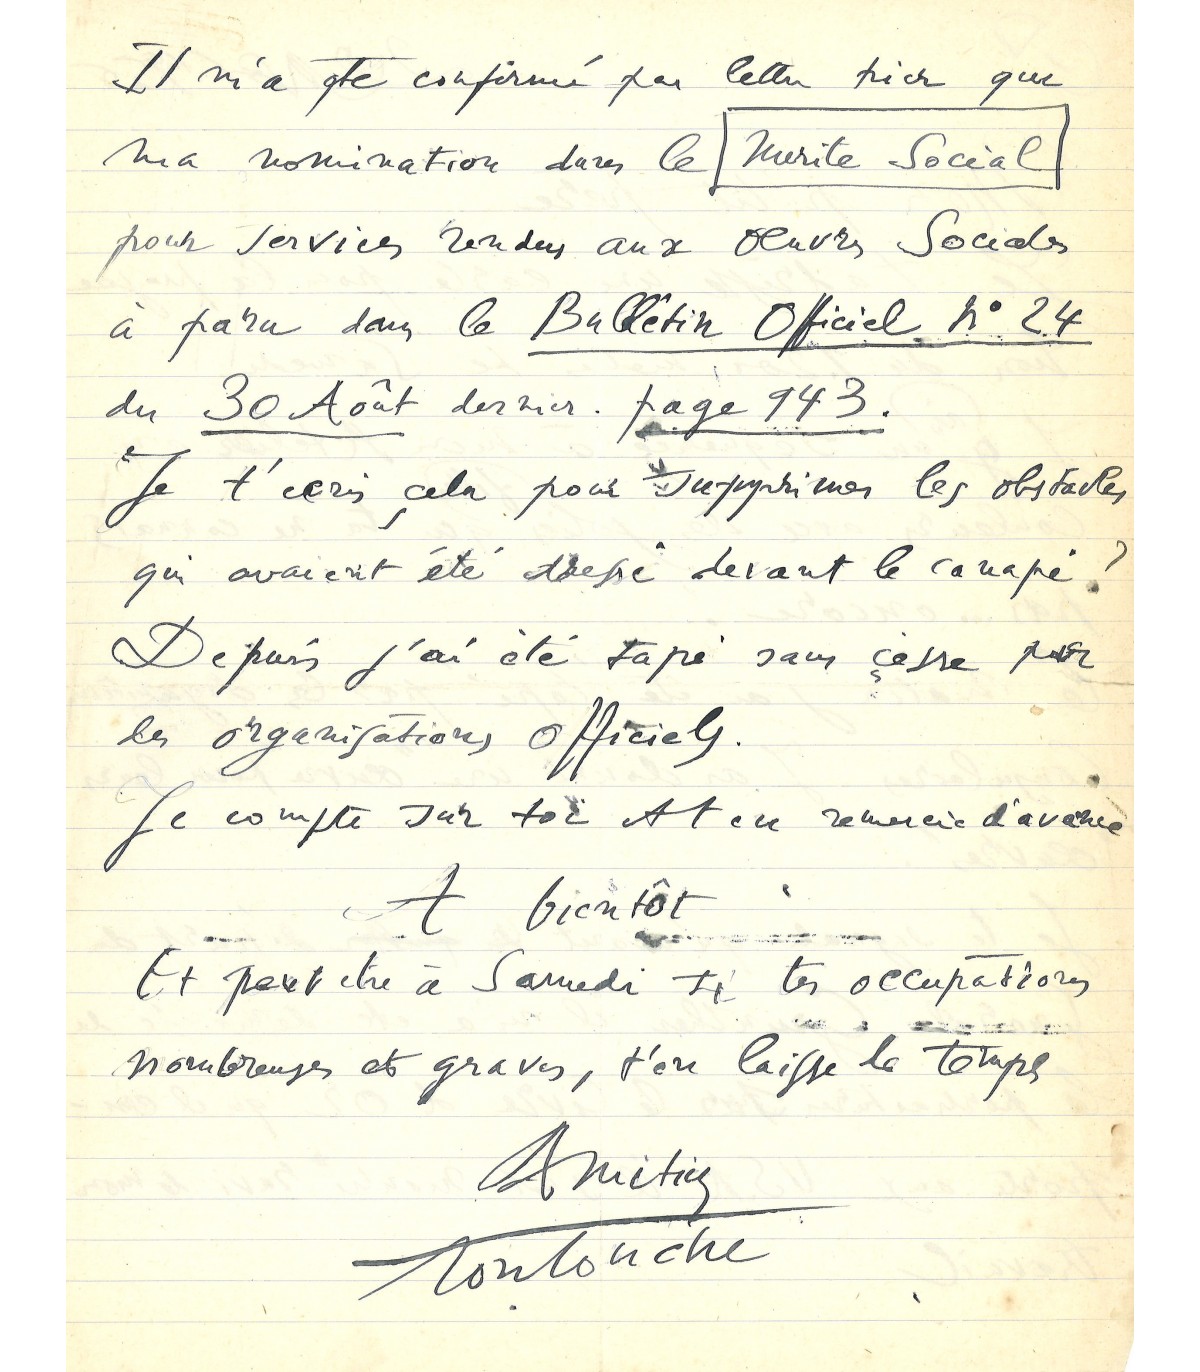 Il m'a été confirmé par lettre hier que
ma nomination dans le Merite Social
pour services rendus aux Oeuvres Sociales
à paru dans le Bulletin Officiel N° 24
du 30 Août dernier. page 943.
Je t'ecris cela pour supprimer les obstacles
qui avaient été dressé devant le canapé ?
Depuis j'ai été tapé sans cesse par
les organisations Officiels.
Je compte sur toi et en remercie d'avance
A bientôt
Et peut etre à Samedi si tes occupations
nombreuses et graves, t'en laisse le temps
Amitiés